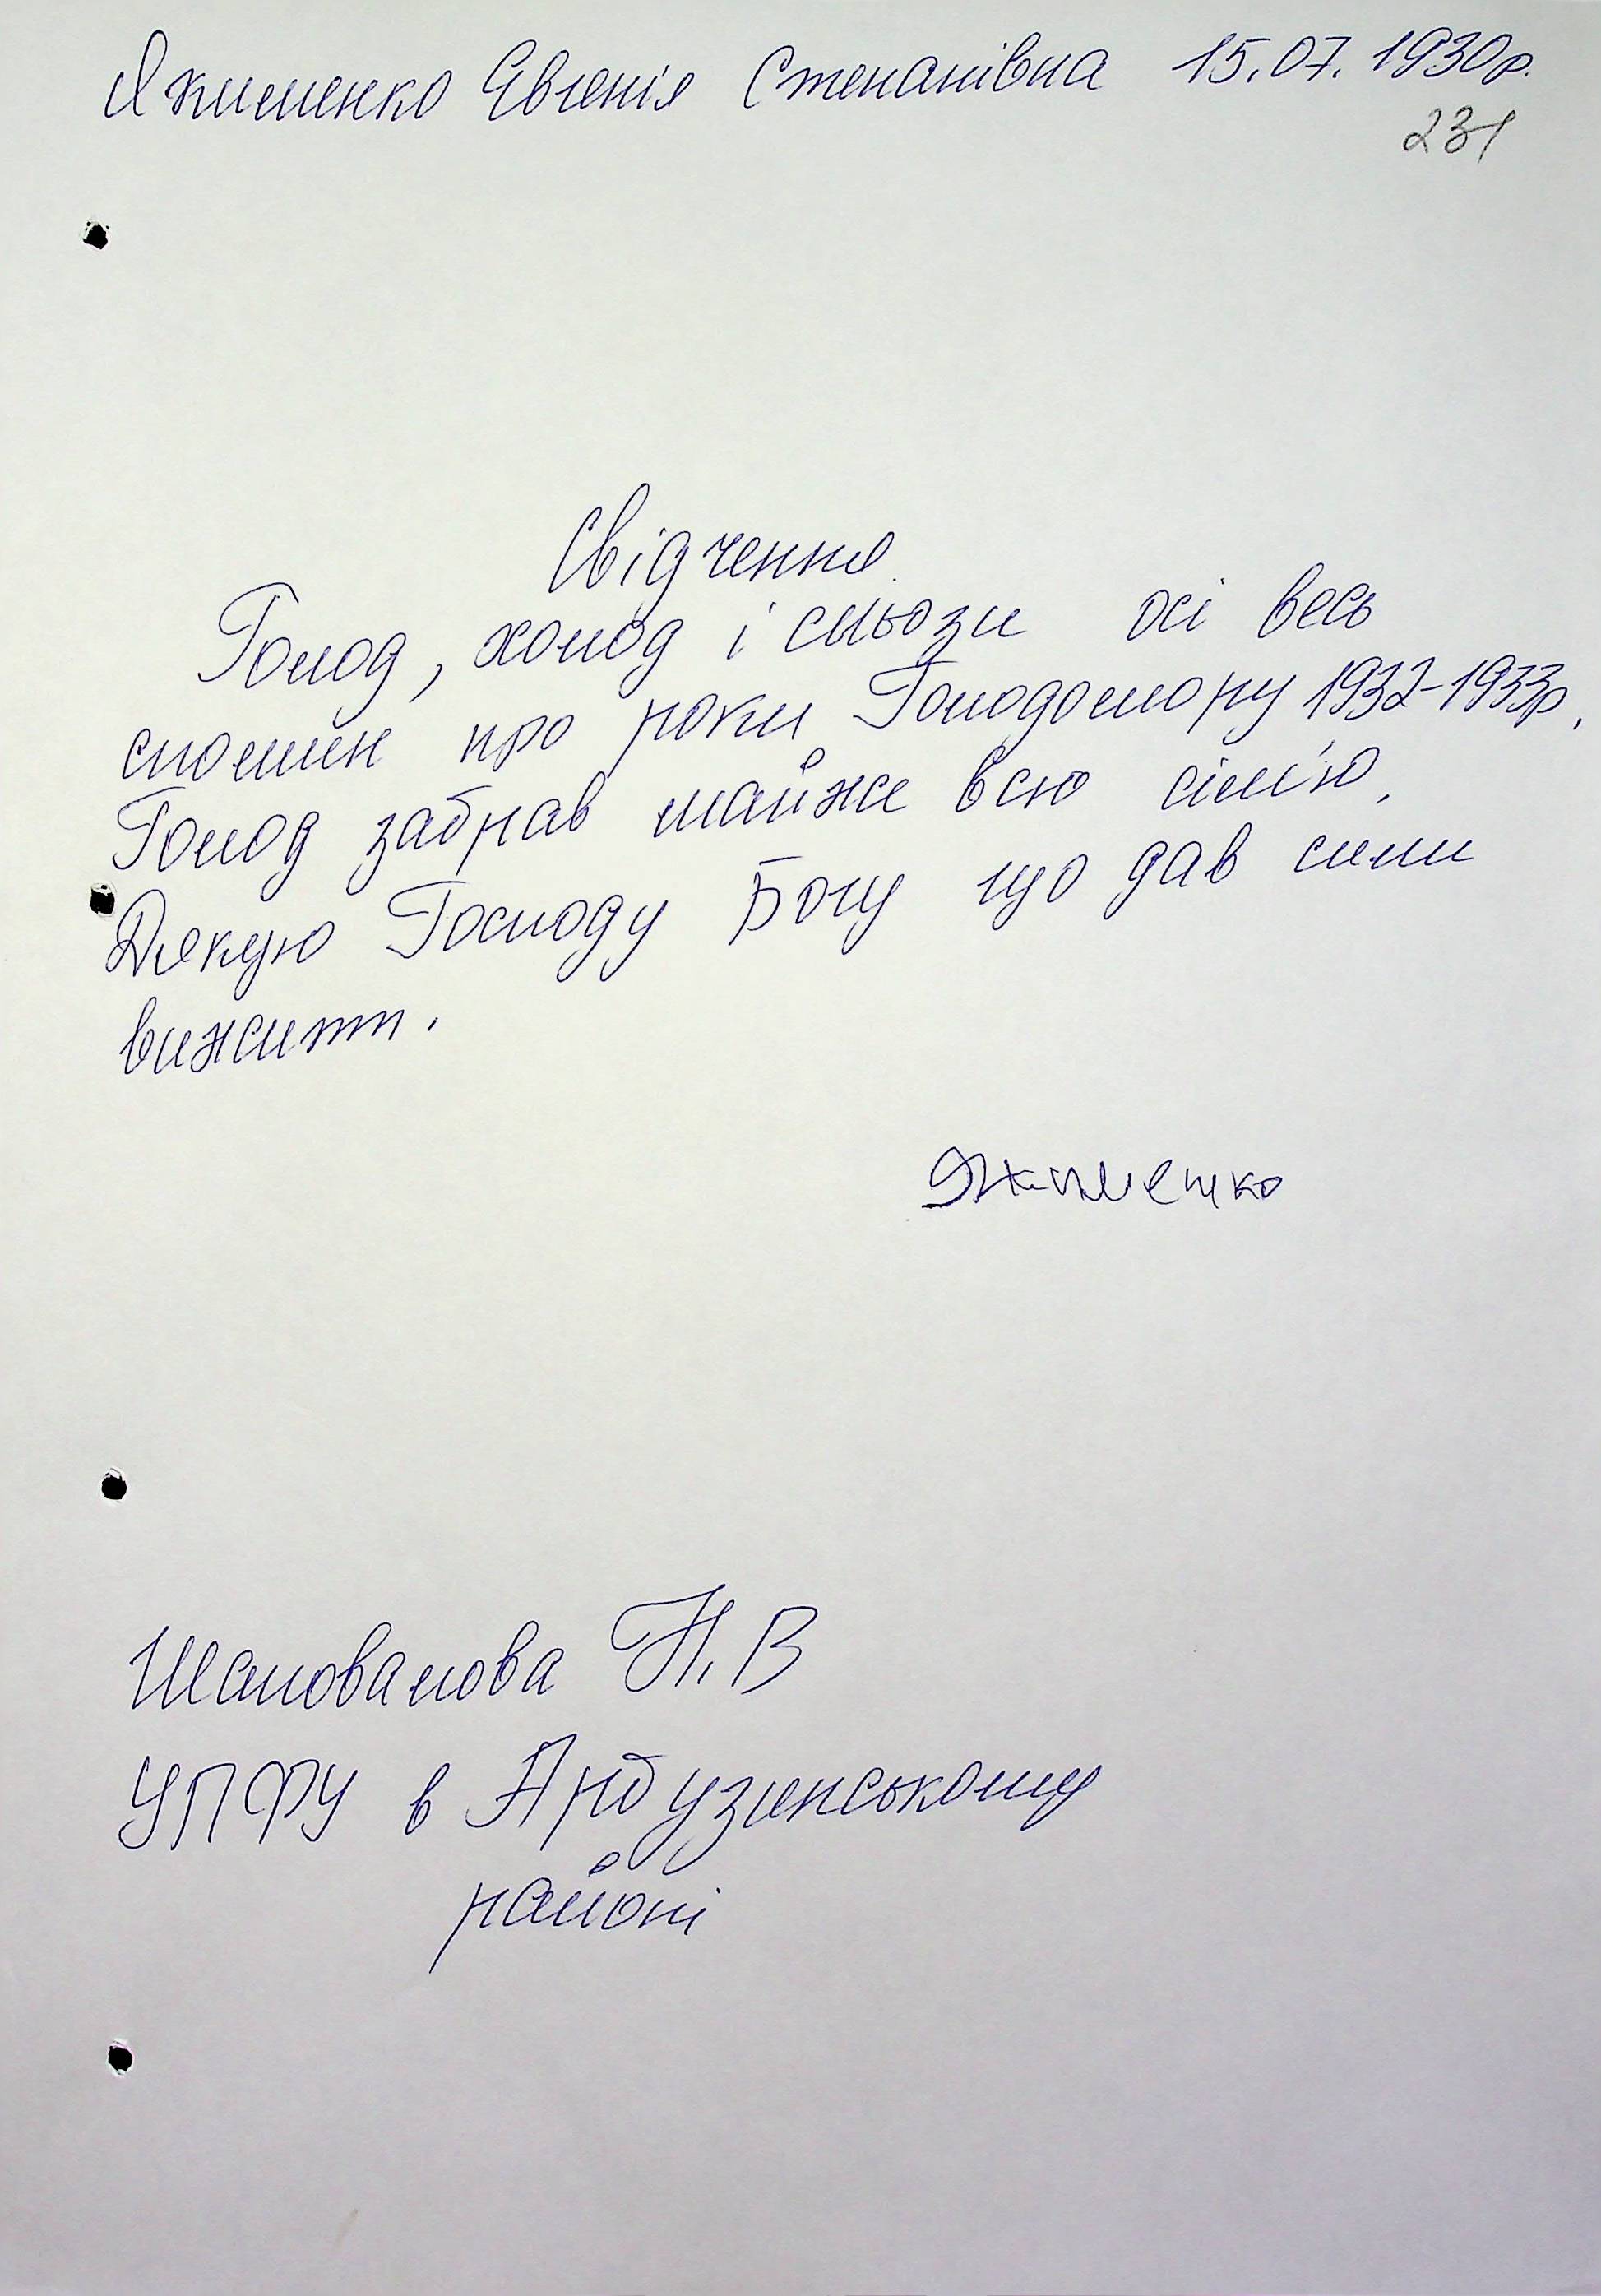 Якименко Євгенія Степанівна 15.07.1930р.
231
Свідчення
Голод, холод і сльози осі весь
спомин про роки Голодомору 1932-1933р.
Голод забрав майже всю сім'ю.
Дякую Господу Богу що дав сили
вижити.
Якименко
Шаповалова Н.В
УПФУ в Арбузинському
районі